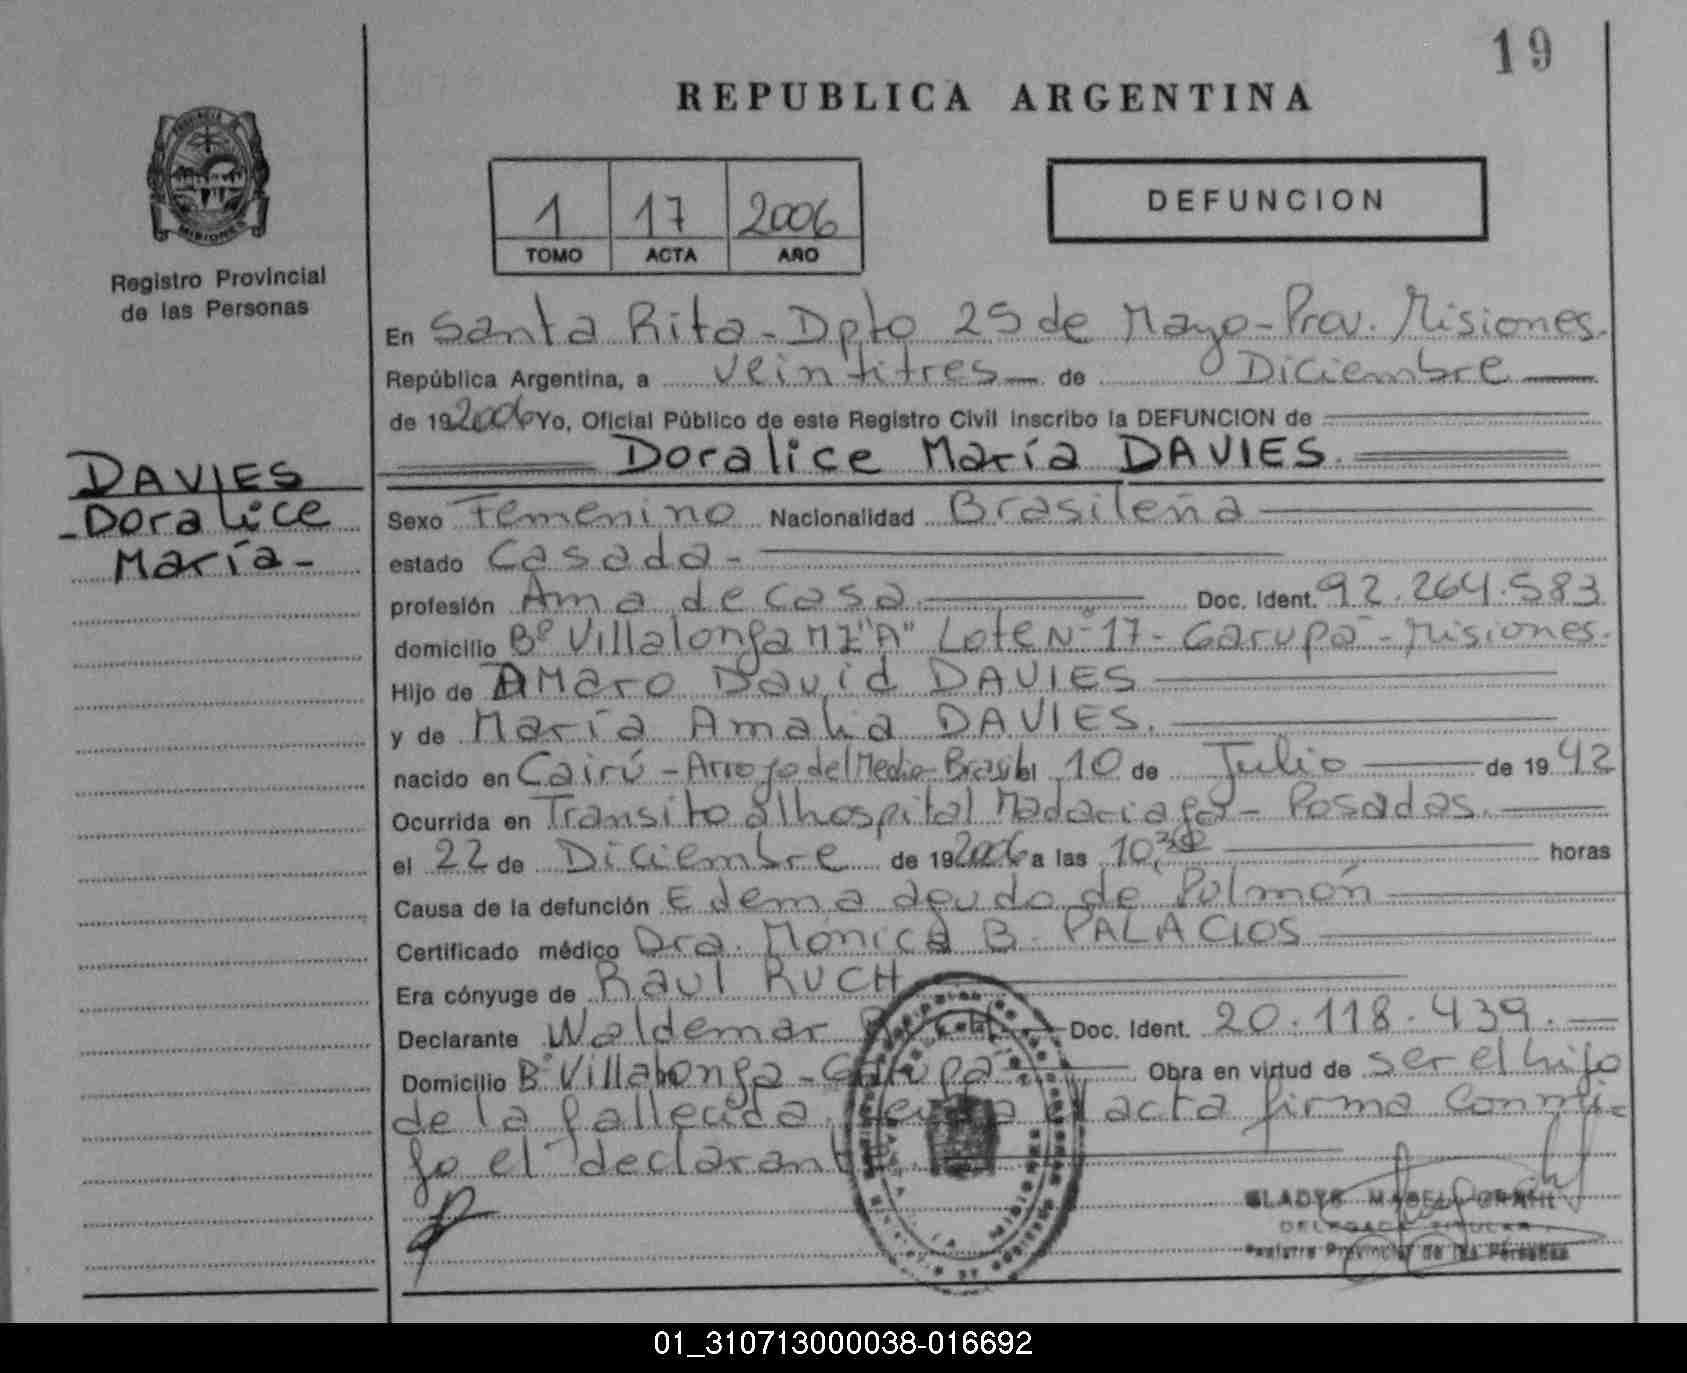 19
REPUBLICA ARGENTINA
PROVINCIA
MISIONES
Registro Provincial
de las Personas
1 17 2006
TOMO ACTA AÑO
DEFUNCION
En Santa Rita - Dpto 25 de Mayo - Prov. Misiones.
República Argentina, a veintitres de Diciembre
de 19 2006 Yo, Oficial Público de este Registro Civil inscribo la DEFUNCION de
Doralice María DAVIES.
DAVIES
- Doralice
María -
Sexo Femenino Nacionalidad Brasileña
estado Casada -
profesión Ama de casa Doc. Ident. 92.264.583
domicilio Bº Villalonga MZ "A" Lote Nº 17 - Garupá - Misiones.
Hijo de AMaro David DAVIES
y de María Amalia DAVIES.
nacido en Cairú - Arroyo del Medio - Brasil el 10 de Julio de 19 42
Ocurrida en Transito al hospital Madariaga - Posadas.
el 22 de Diciembre de 19 2006 a las 10,30 horas
Causa de la defunción Edema agudo de Pulmón
Certificado médico Dra. Monica B. PALACIOS
Era cónyuge de Raul RUCH
Declarante Waldemar Doc. Ident. 20.118.439.
Domicilio Bº Villalonga - Garupá Obra en virtud de ser el hijo
de la fallecida, acta firma conmi-
go el declarante
GLADYS MABEL
DELEGADA TITULAR
Registro Provincial de las Personas
01_310713000038-016692